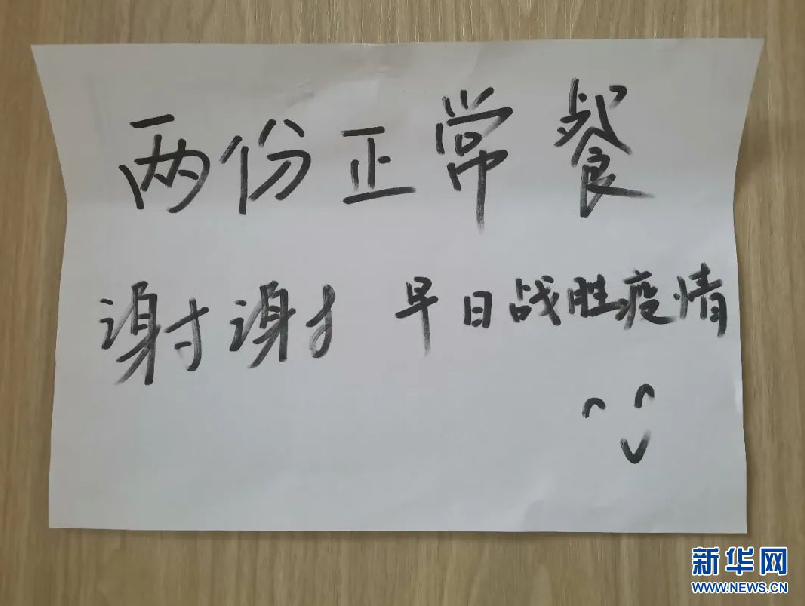 两份正常餐
谢谢 早日战胜疫情
新华网
WWW.NEWS.CN